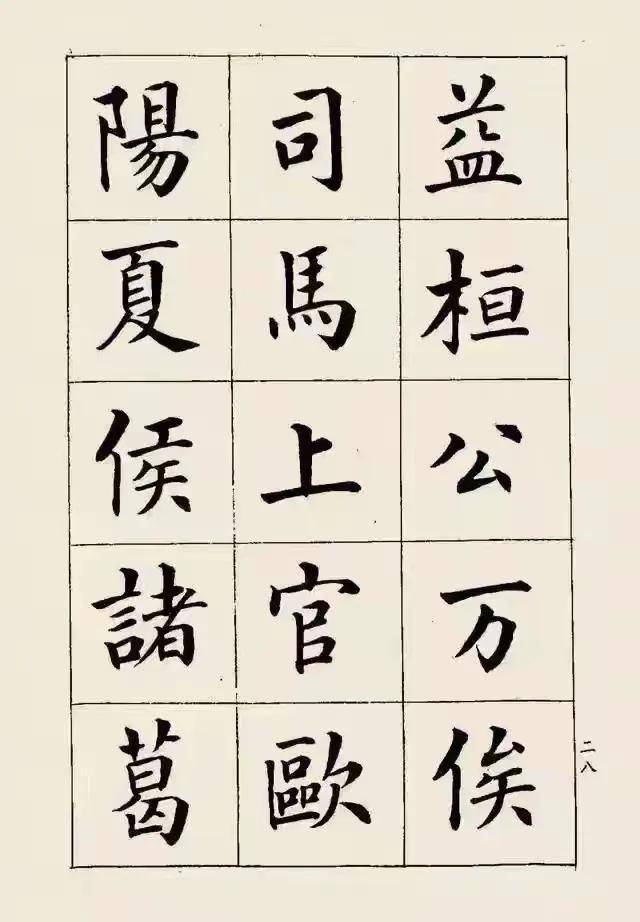 益桓公万俟
司馬上官歐
陽夏侯諸葛
二八